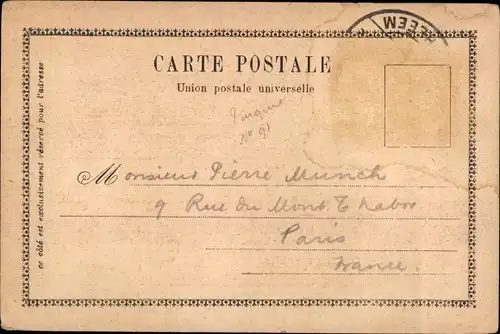 CARTE POSTALE
Union postale universelle
No 91
Monsieur Pierre Munch
9 Rue du Mont Thabor
Paris
France.
ce côté est exclusivement réservé pour l'adresse